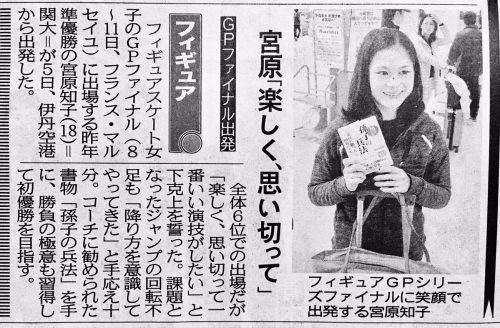 宮原「楽しく、思い切って」
GPファイナル出発
フィギュア
フィギュアスケート女
子のGPファイナル(8
〜11日、フランス・マル
セイユ)に出場する昨年
準優勝の宮原知子(18)=
関大=が5日、伊丹空港
から出発した。
全体6位での出場だが
「楽しく、思い切って一
番いい演技がしたい」と
下克上を誓った。課題と
なったジャンプの回転不
足も「降り方を意識して
やってきた」と手応え十
分。コーチに勧められた
書物「孫子の兵法」を手
に、勝負の極意も習得し
て初優勝を目指す。
孫子の兵法
フィギュアGPシリー
ズファイナルに笑顔で
出発する宮原知子